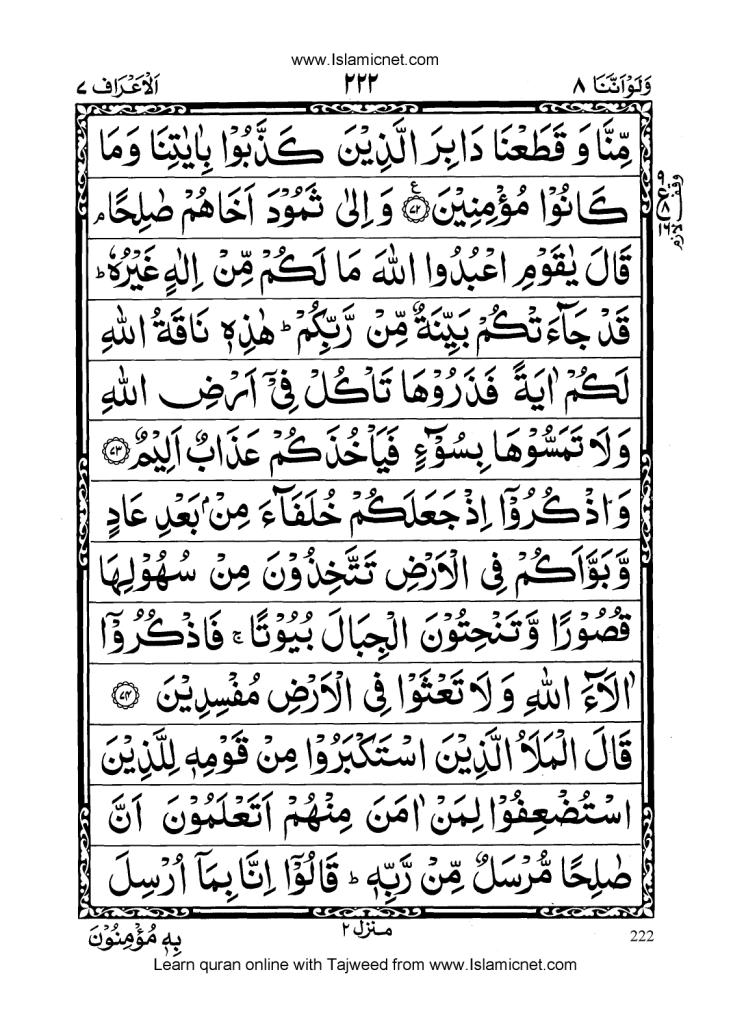 www.Islamicnet.com
وَلَوْاَنَّنَا ٨
٢٢٢
اَلْاَعْرَاف ٧
مِّنَّا وَ قَطَعْنَا دَابِرَ الَّذِيْنَ كَذَّبُوْا بِاٰيٰتِنَا وَمَا
كَانُوْا مُؤْمِنِيْنَ ۧ﴿٧٢﴾ وَ اِلٰى ثَمُوْدَ اَخَاهُمْ صٰلِحًا ۘ
قَالَ يٰقَوْمِ اعْبُدُوا اللّٰهَ مَا لَكُمْ مِّنْ اِلٰهٍ غَيْرُهٗ ؕ
قَدْ جَآءَتْكُمْ بَيِّنَةٌ مِّنْ رَّبِّكُمْ ؕ هٰذِهٖ نَاقَةُ اللّٰهِ
لَكُمْ اٰيَةً فَذَرُوْهَا تَاْكُلْ فِيْۤ اَرْضِ اللّٰهِ
وَلَا تَمَسُّوْهَا بِسُوْٓءٍ فَيَاْخُذَكُمْ عَذَابٌ اَلِيْمٌ ﴿٧٣﴾
وَ اذْكُرُوْۤا اِذْ جَعَلَكُمْ خُلَفَآءَ مِنْۢ بَعْدِ عَادٍ
وَّ بَوَّاَكُمْ فِى الْاَرْضِ تَتَّخِذُوْنَ مِنْ سُهُوْلِهَا
قُصُوْرًا وَّ تَنْحِتُوْنَ الْجِبَالَ بُيُوْتًا ۚ فَاذْكُرُوْۤا
اٰلَآءَ اللّٰهِ وَ لَا تَعْثَوْا فِى الْاَرْضِ مُفْسِدِيْنَ ﴿٧٤﴾
قَالَ الْمَلَاُ الَّذِيْنَ اسْتَكْبَرُوْا مِنْ قَوْمِهٖ لِلَّذِيْنَ
اسْتُضْعِفُوْا لِمَنْ اٰمَنَ مِنْهُمْ اَتَعْلَمُوْنَ اَنَّ
صٰلِحًا مُّرْسَلٌ مِّنْ رَّبِّهٖ ؕ قَالُوْۤا اِنَّا بِمَاۤ اُرْسِلَ
ع
٨
١٦
وقف لازم
منزل ٢
بِهٖ مُؤْمِنُوْنَ
222
Learn quran online with Tajweed from www.Islamicnet.com